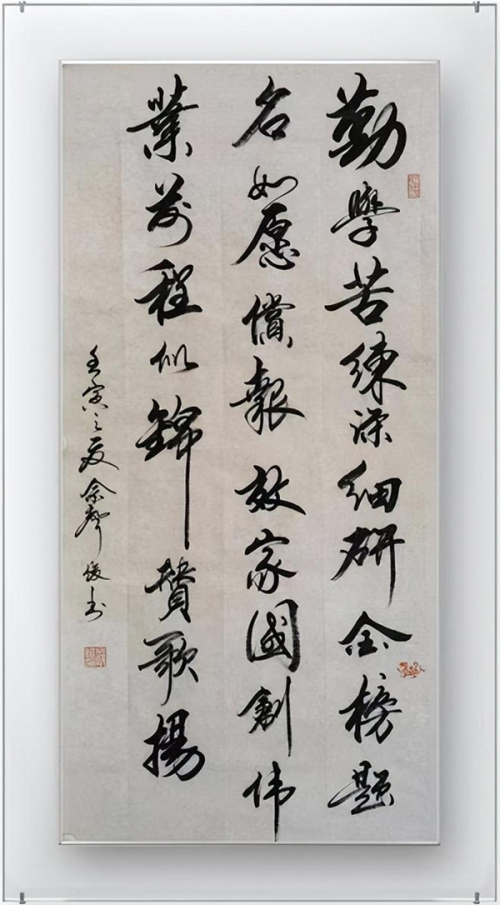 勤學苦練深細研金榜題
名如愿償報效家國創伟
業前程似錦贊歌揚
壬寅之夏余聲俊书